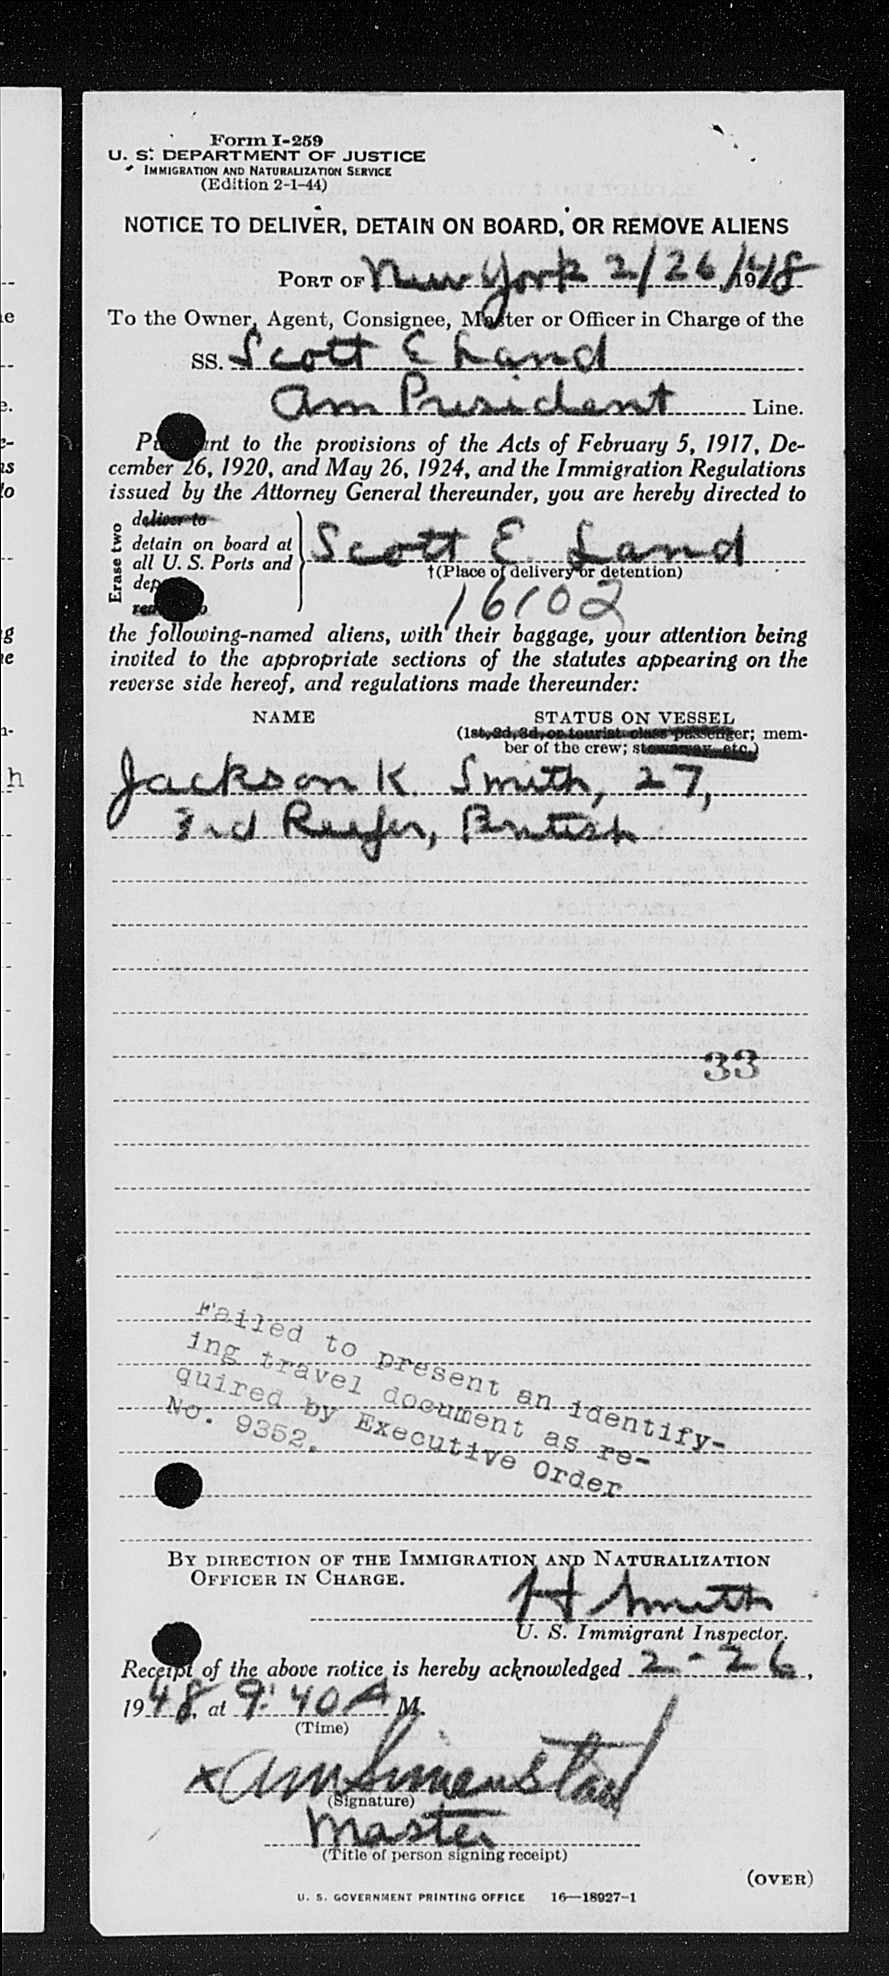 Form I-259
U. S. DEPARTMENT OF JUSTICE
IMMIGRATION AND NATURALIZATION SERVICE
(Edition 2-1-44)
NOTICE TO DELIVER, DETAIN ON BOARD, OR REMOVE ALIENS
PORT OF New York 2/26/1948
To the Owner, Agent, Consignee, Master or Officer in Charge of the
SS. Scott E Land
Am President Line.
to the provisions of the Acts of February 5, 1917, De-
cember 26, 1920, and May 26, 1924, and the Immigration Regulations
issued by the Attorney General thereunder, you are hereby directed to
Erase two
deliver to
detain on board at
all U. S. Ports and
Scott E. Land
†(Place of delivery or detention)
16102
the following-named aliens, with their baggage, your attention being
invited to the appropriate sections of the statutes appearing on the
reverse side hereof, and regulations made thereunder:
NAME STATUS ON VESSEL
(1st, 2d, 3d, or tourist class passenger; mem-
ber of the crew; stowaway, etc.)
Jackson K Smith, 27,
3rd Reefer, British
33
Failed to present an identify-
ing travel document as re-
quired by Executive Order
No. 9352.
BY DIRECTION OF THE IMMIGRATION AND NATURALIZATION
OFFICER IN CHARGE.
H Smith
U. S. Immigrant Inspector.
Receipt of the above notice is hereby acknowledged 2-26,
1948, at 9:40 A M.
(Time)
x
(Signature)
Master
(Title of person signing receipt)
(OVER)
U. S. GOVERNMENT PRINTING OFFICE 16—18927-1
h